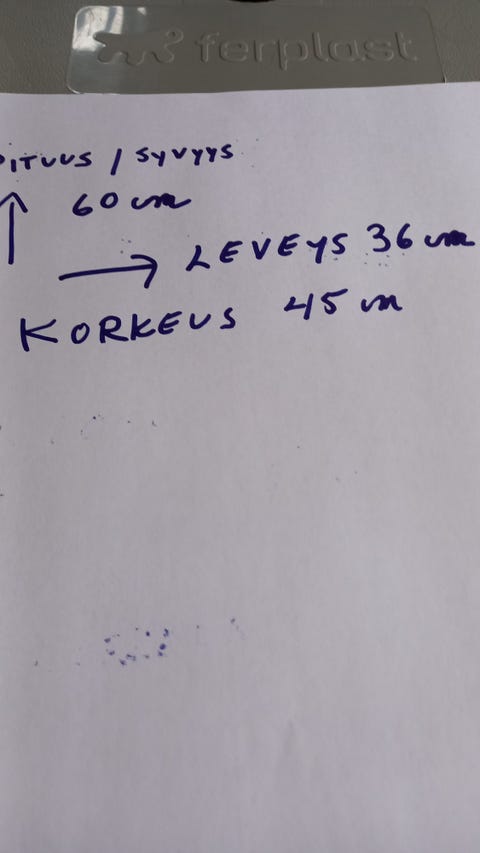 ferplast
PITUUS / SYVYYS
60 cm
LEVEYS 36 cm
KORKEUS 45 cm